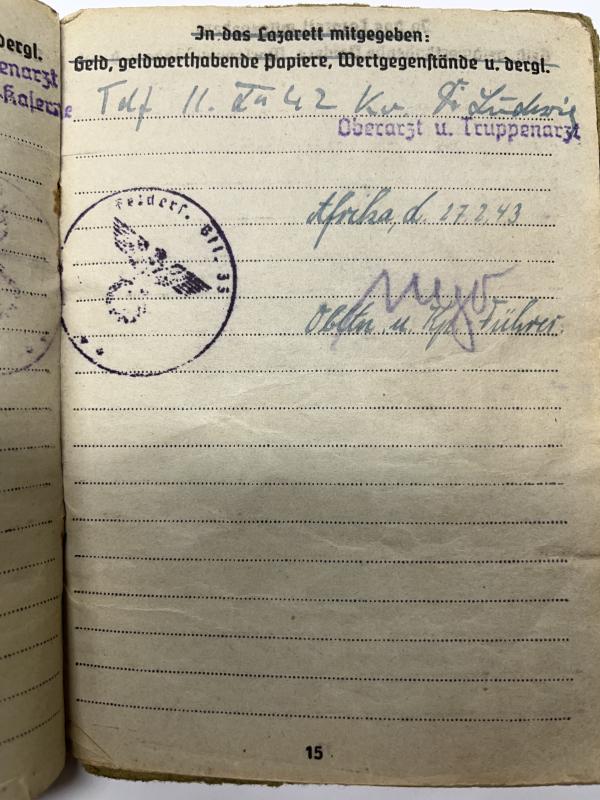 dergl.
enarzt
-Kaserne
In das Lazarett mitgegeben:
Geld, geldwerthabende Papiere, Wertgegenstände u. dergl.
Tdf 11. 42 Kv. Dr Ludwig
Oberarzt u. Truppenarzt
Felders. Btl. 33
Afrika, d. 27.2.43
Obltn. u. Kp. Führer.
15